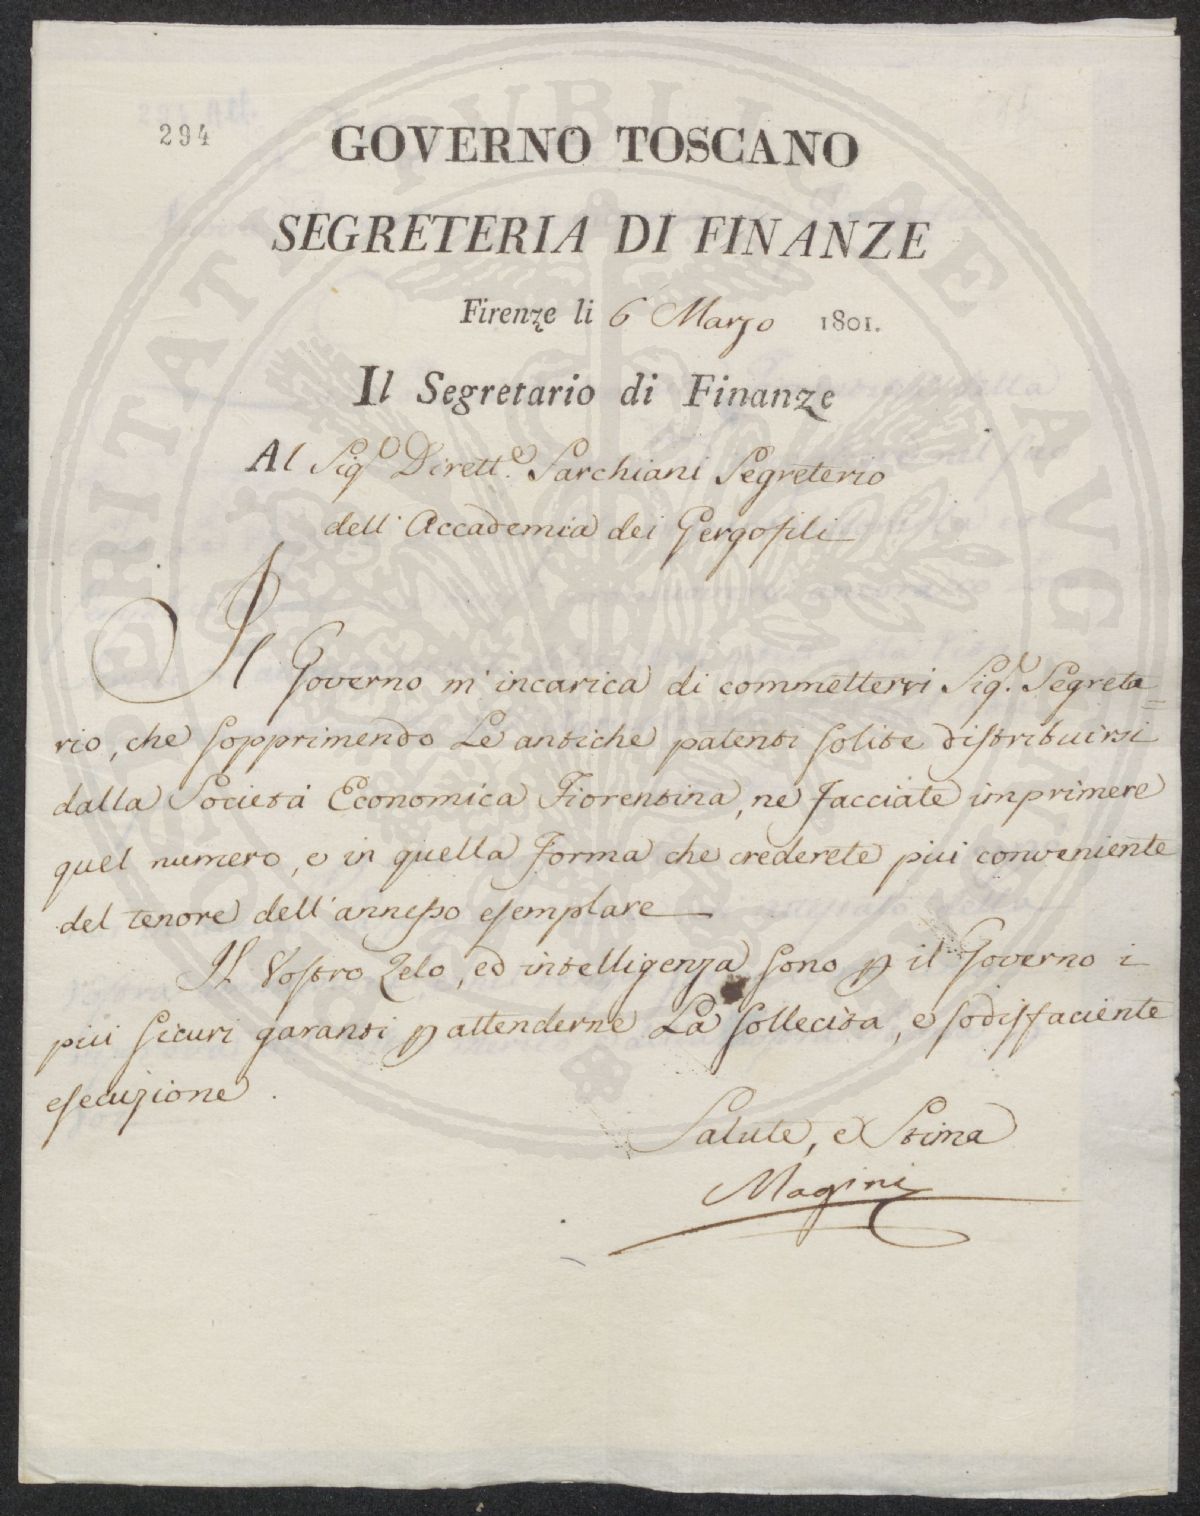 294
GOVERNO TOSCANO
SEGRETERIA DI FINANZE
Firenze li 6 Marzo 1801.
Il Segretario di Finanze
Al Sig.e Dirett.e Sarchiani Segreterio
dell'Accademia dei Gergofili
Il Governo m'incarica di commettervi Sig.e Segreta=
rio, che sopprimendo Le antiche patenti solite distribuirsi
dalla Società Economica Fiorentina, ne facciate imprimere
quel numero, e in quella forma che crederete più conveniente
del tenore dell'annesso esemplare
Il Vostro Zelo, ed intelligenza sono p il Governo i
più sicuri garanti p attenderne La sollecita, e sodisfaciente
esecuzione.
Salute, e Stima
Magini